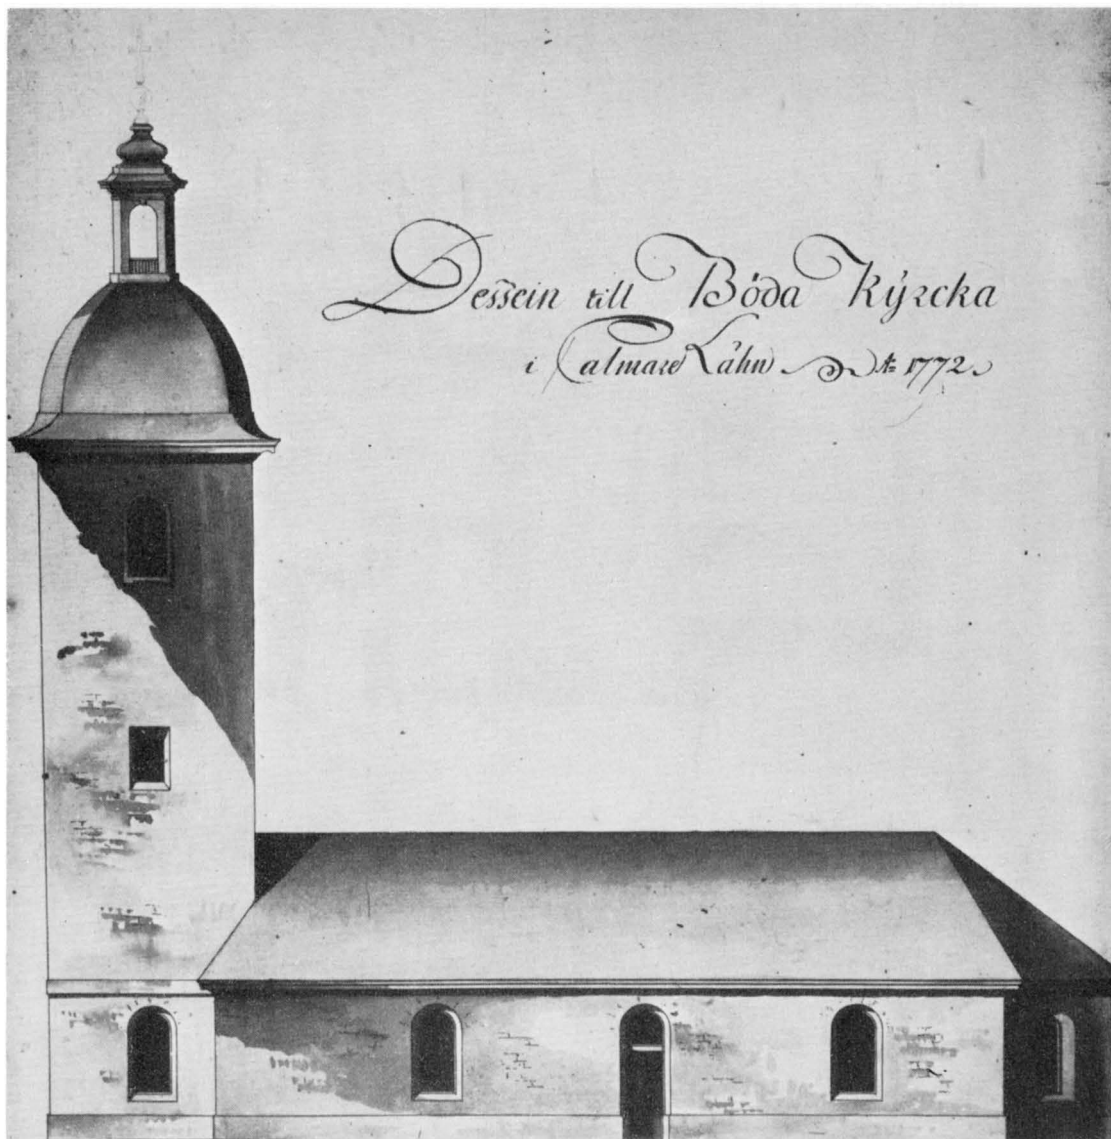 Dessein till Böda Kÿrcka
i Calmare Lähn A: 1772.